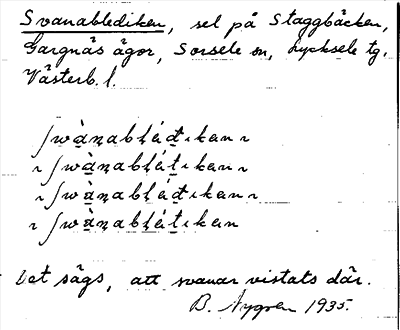 Svanablediken, sel på Staggbäcken,
Gargnäs ägor, Sorsele sn, Lycksele tg,
Västerb. l.
ʃwànabḷád̲ıkan
ʃwànabḷát̲ıkan
ʃwànabḷád̲ıkan
ʃwànabḷát̲ıkan
Det sägs, att svanar vistats där.
B. Nygren 1935.